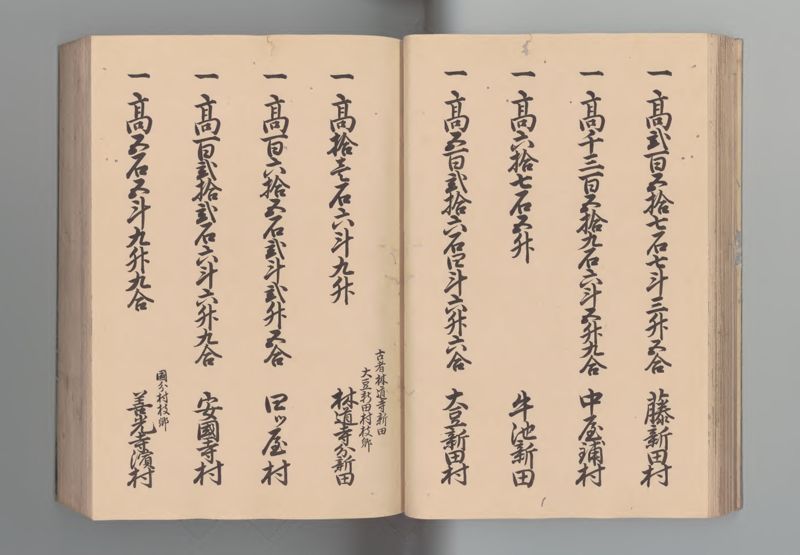 一 髙弐百五拾七石七斗三升五合 藤新田村
一 髙千三百五拾九石六斗五升九合 中屋鋪村
一 髙六拾七石五升 牛池新田
一 髙五百弐拾六石四斗六升六合 大豆新田村
古者林道寺新田
大豆新田村枝郷
一 髙拾壱石六斗九升 林道寺分新田
一 髙百六拾五石弐斗弐升五合 四ッ屋村
一 髙百弐拾弐石六斗六升九合 安國寺村
國分村枝郷
一 髙五石五斗九升九合 善光寺濱村